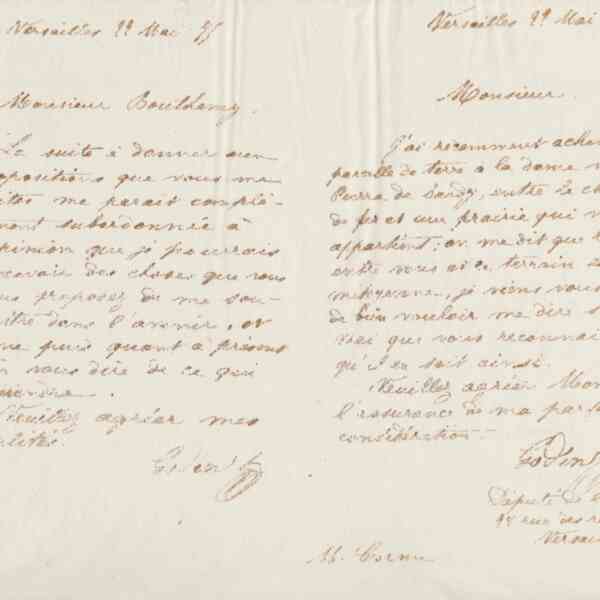 Versailles 22 Mai 75
Monsieur Boulhaney.
La suite à donner aux
positions que vous me
ites me parait complè-
ment subordonnée à
opinion que je pourrais
ncevoir des choses que vous
us proposez de me sou-
ttre dans l'avenir, or
ne puis quant à présent
n vous dire de ce qui
Veuillez agréer mes
lités.
Godin
Versailles 22 Mai
Monsieur.
J'ai recemment ache
parcelle de terre à la dame
de entre le ch
de fer et une prairie qui m
appartient; or me dit que
entre vous et ce terrain
mitoyenne, je viens vous
de bien vouloir me dire s
vrai que vous reconnai
qu'il en soit ainsi.
Veuillez agréer Mon
l'assurance de ma parf
considération.
Godin
Député de
rue des r
Versai
M. Cornu